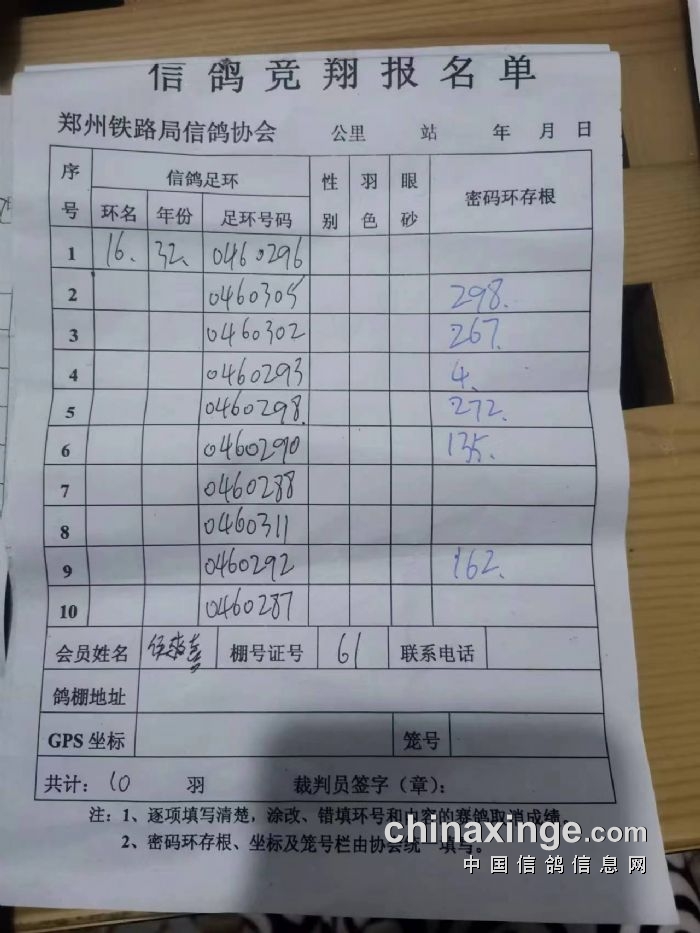 信鸽竞翔报名单
郑州铁路局信鸽协会 公里 站 年 月 日
序号 信鸽足环 性别 羽色 眼砂 密码环存根
环名 年份 足环号码
1 16. 32. 0460296
2 0460305 298.
3 0460302 267.
4 0460293 4.
5 0460298. 272.
6 0460290 135.
7 0460288
8 0460311
9 0460292 162.
10 0460287
会员姓名 棚号证号 61 联系电话
鸽棚地址
GPS 坐标 笼号
共计：10 羽 裁判员签字（章）：
注：1、逐项填写清楚，涂改、错填环号和内容的赛鸽取消成绩。
2、密码环存根、坐标及笼号栏由协会统一填写。
chinaxinge.com
中国信鸽信息网